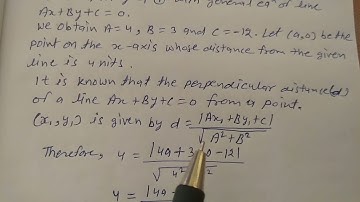 ① with general eqⁿ of line
Ax+By+C=0.
we obtain A=4, B=3 and C=-12. Let (a,0) be the
point on the x-axis whose distance from the given
line is 4 units.
It is known that the perpendicular distance(d)
of a line Ax+By+C=0 from a point.
(x₁,y₁) is given by d = |Ax₁+By₁+C| / √A²+B²
Therefore, 4 = |4a+3 0-12| / √4² ²
4 = |4a